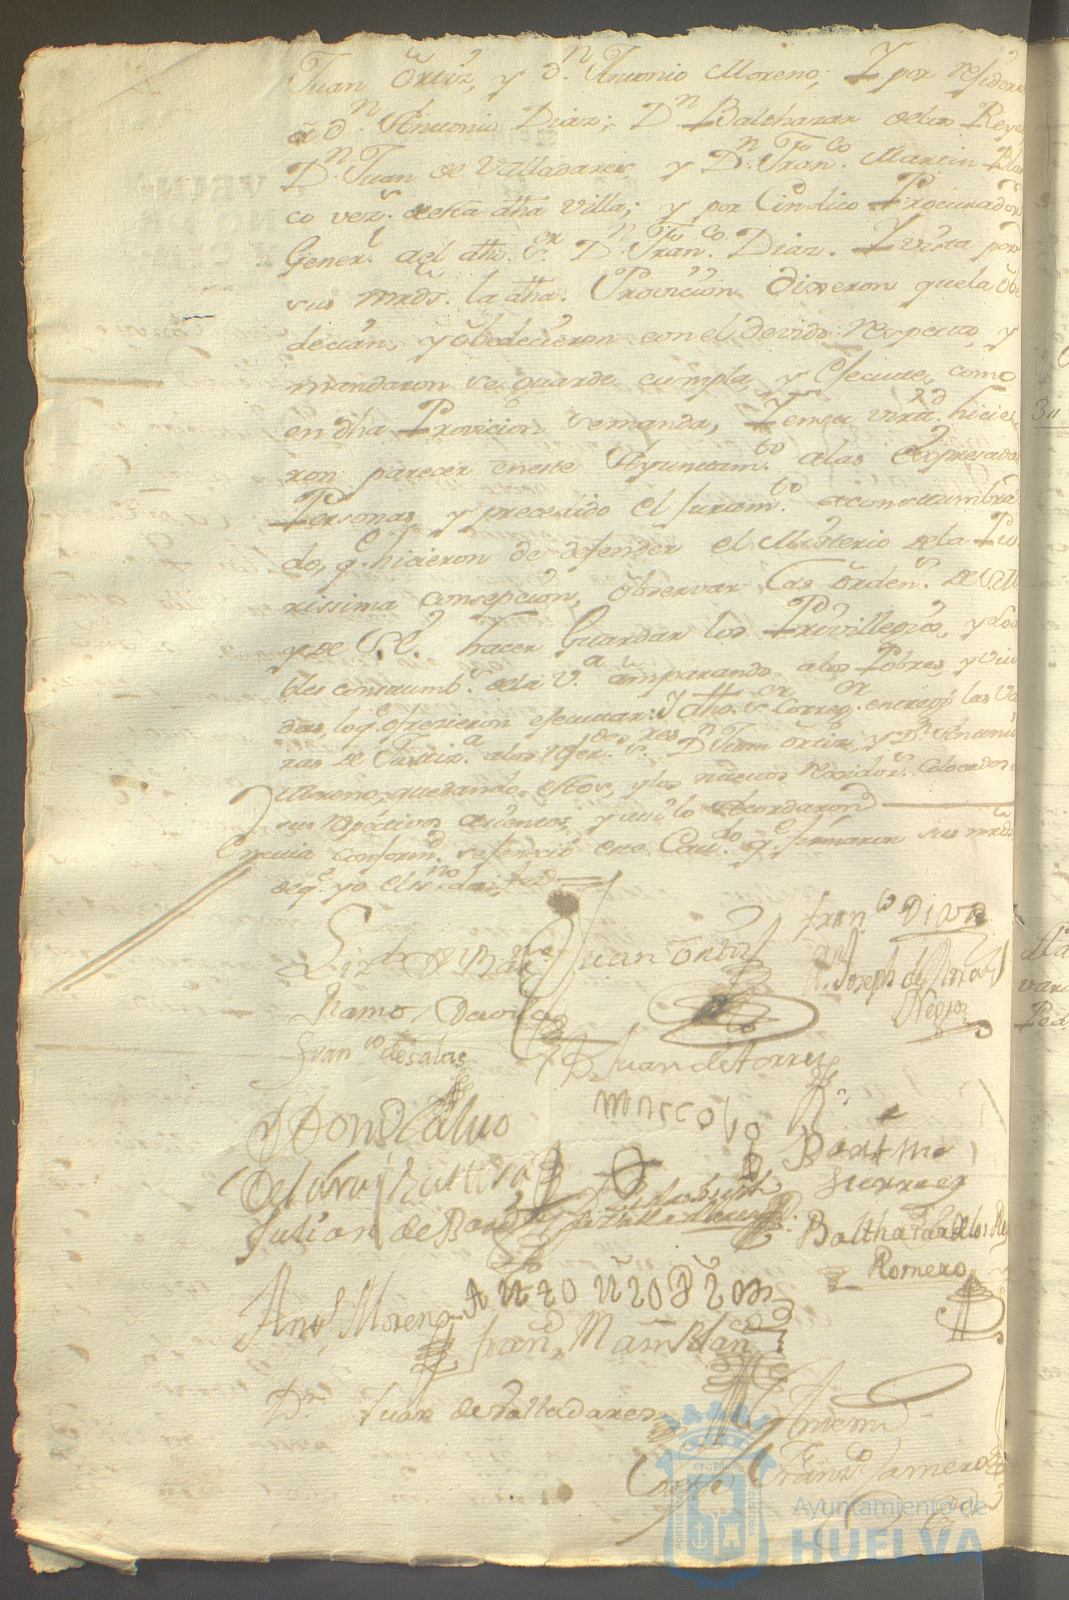 Juan Ortiz, y Dn. Antonio Moreno; Y por rejidores
â Dn. Antonio Diaz; Dn Balthazar delos Reyes
Dn. Juan de Valladares y Dn. Franco. Martin Blan
co vezs. desta dha villa; y por Cindico Procurador
Generl. a el dho. Sr. Dn. Franco. Diaz. Y vista por
sus mrds. la dha. Provicion dixeron que la obe
decian, y obedecieron con el devido respecto, y
mandaron se guarde cumpla, y Execute, como
en dha Provicion se manda, Y en su virtd. hicie
ron parecer en este Ayuntamto. a las Expresadas
Personas, y precedido el Juramto. acostumbra
do, q. hicieron de defender el Misterio de la Pu
rissima Consepcion, observar las ordens. de S.M.
y de S.E. hacer Guardar los Privillegios, y loa
bles costumbs. de la Va. amparando a los Pobres, y Viu
das, lo qe. ofrezieron executar: Y dho. Sr. Correor. entregó las Va
ras de Justiza. a los referidos Sres. Dn. Juan Ortiz, y Dn. Antonio
Moreno, quedando estos, y los nuevos rexidors. colocados en
sus respectivos asientos, y assi lo acordaron
En cuia conformd. se fenecio este Cavdo. qe. firmaron sus mrds.
de qe. yo el Sno. doi fee
Franco Diaz
Juan Ortiz
Ramos Davila
Rl. Joseph de
Negro
Franco de Salas
D. Juan de Torres
Marcolo
Dom Calvo
Bartme
Julian de
Balthazar de los Reyes
Romero
Anto. Moreno
Antonio
Fran. Martin Blanco
Dn. Juan de Valladares
Ante mi
Franzo. Jamero
Ayuntamiento de
HUELVA